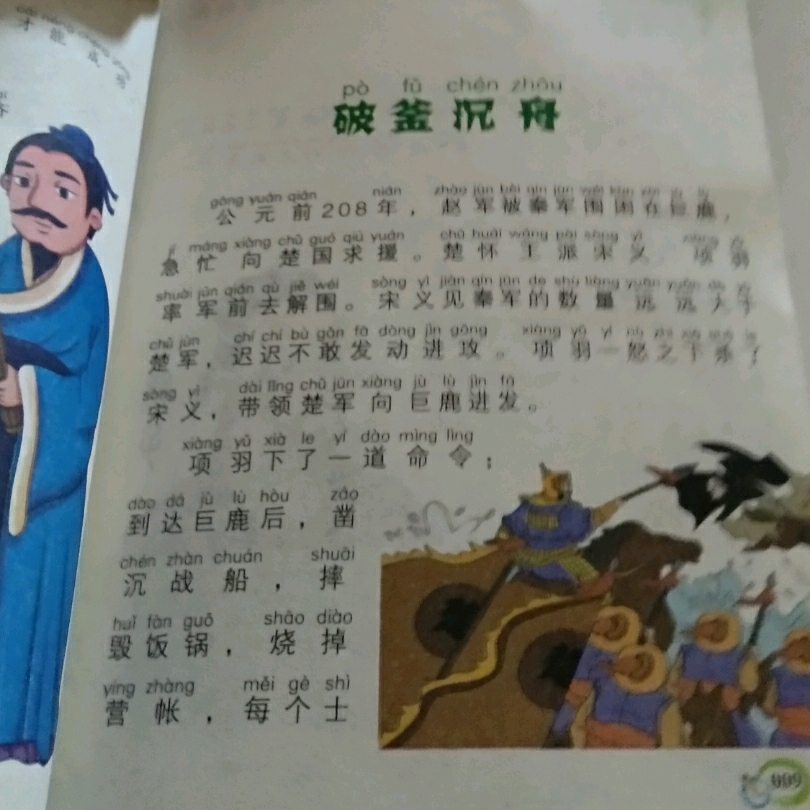 cái néng chéng gōng
才能成功
pò fǔ chén zhōu
破釜沉舟
gōng yuán qián nián zhào jūn bèi qín jūn wéi kùn zài jù lù
公元前208年，赵军被秦军围困在巨鹿，
jí máng xiàng chǔ guó qiú yuán chǔ huái wáng pài sòng yì xiàng yǔ
急忙向楚国求援。楚怀王派宋义、项羽
shuài jūn qián qù jiě wéi sòng yì jiàn qín jūn de shù liàng yuǎn yuǎn dà yú
率军前去解围。宋义见秦军的数量远远大于
chǔ jūn chí chí bù gǎn fā dòng jìn gōng xiàng yǔ yí nù zhī xià shā le
楚军，迟迟不敢发动进攻。项羽一怒之下杀了
sòng yì dài lǐng chǔ jūn xiàng jù lù jìn fā
宋义，带领楚军向巨鹿进发。
xiàng yǔ xià le yí dào mìng lìng
项羽下了一道命令：
dào dá jù lù hòu záo
到达巨鹿后，凿
chén zhàn chuán shuāi
沉战船，摔
huǐ fàn guō shāo diào
毁饭锅，烧掉
yíng zhàng měi gè shì
营帐，每个士
009